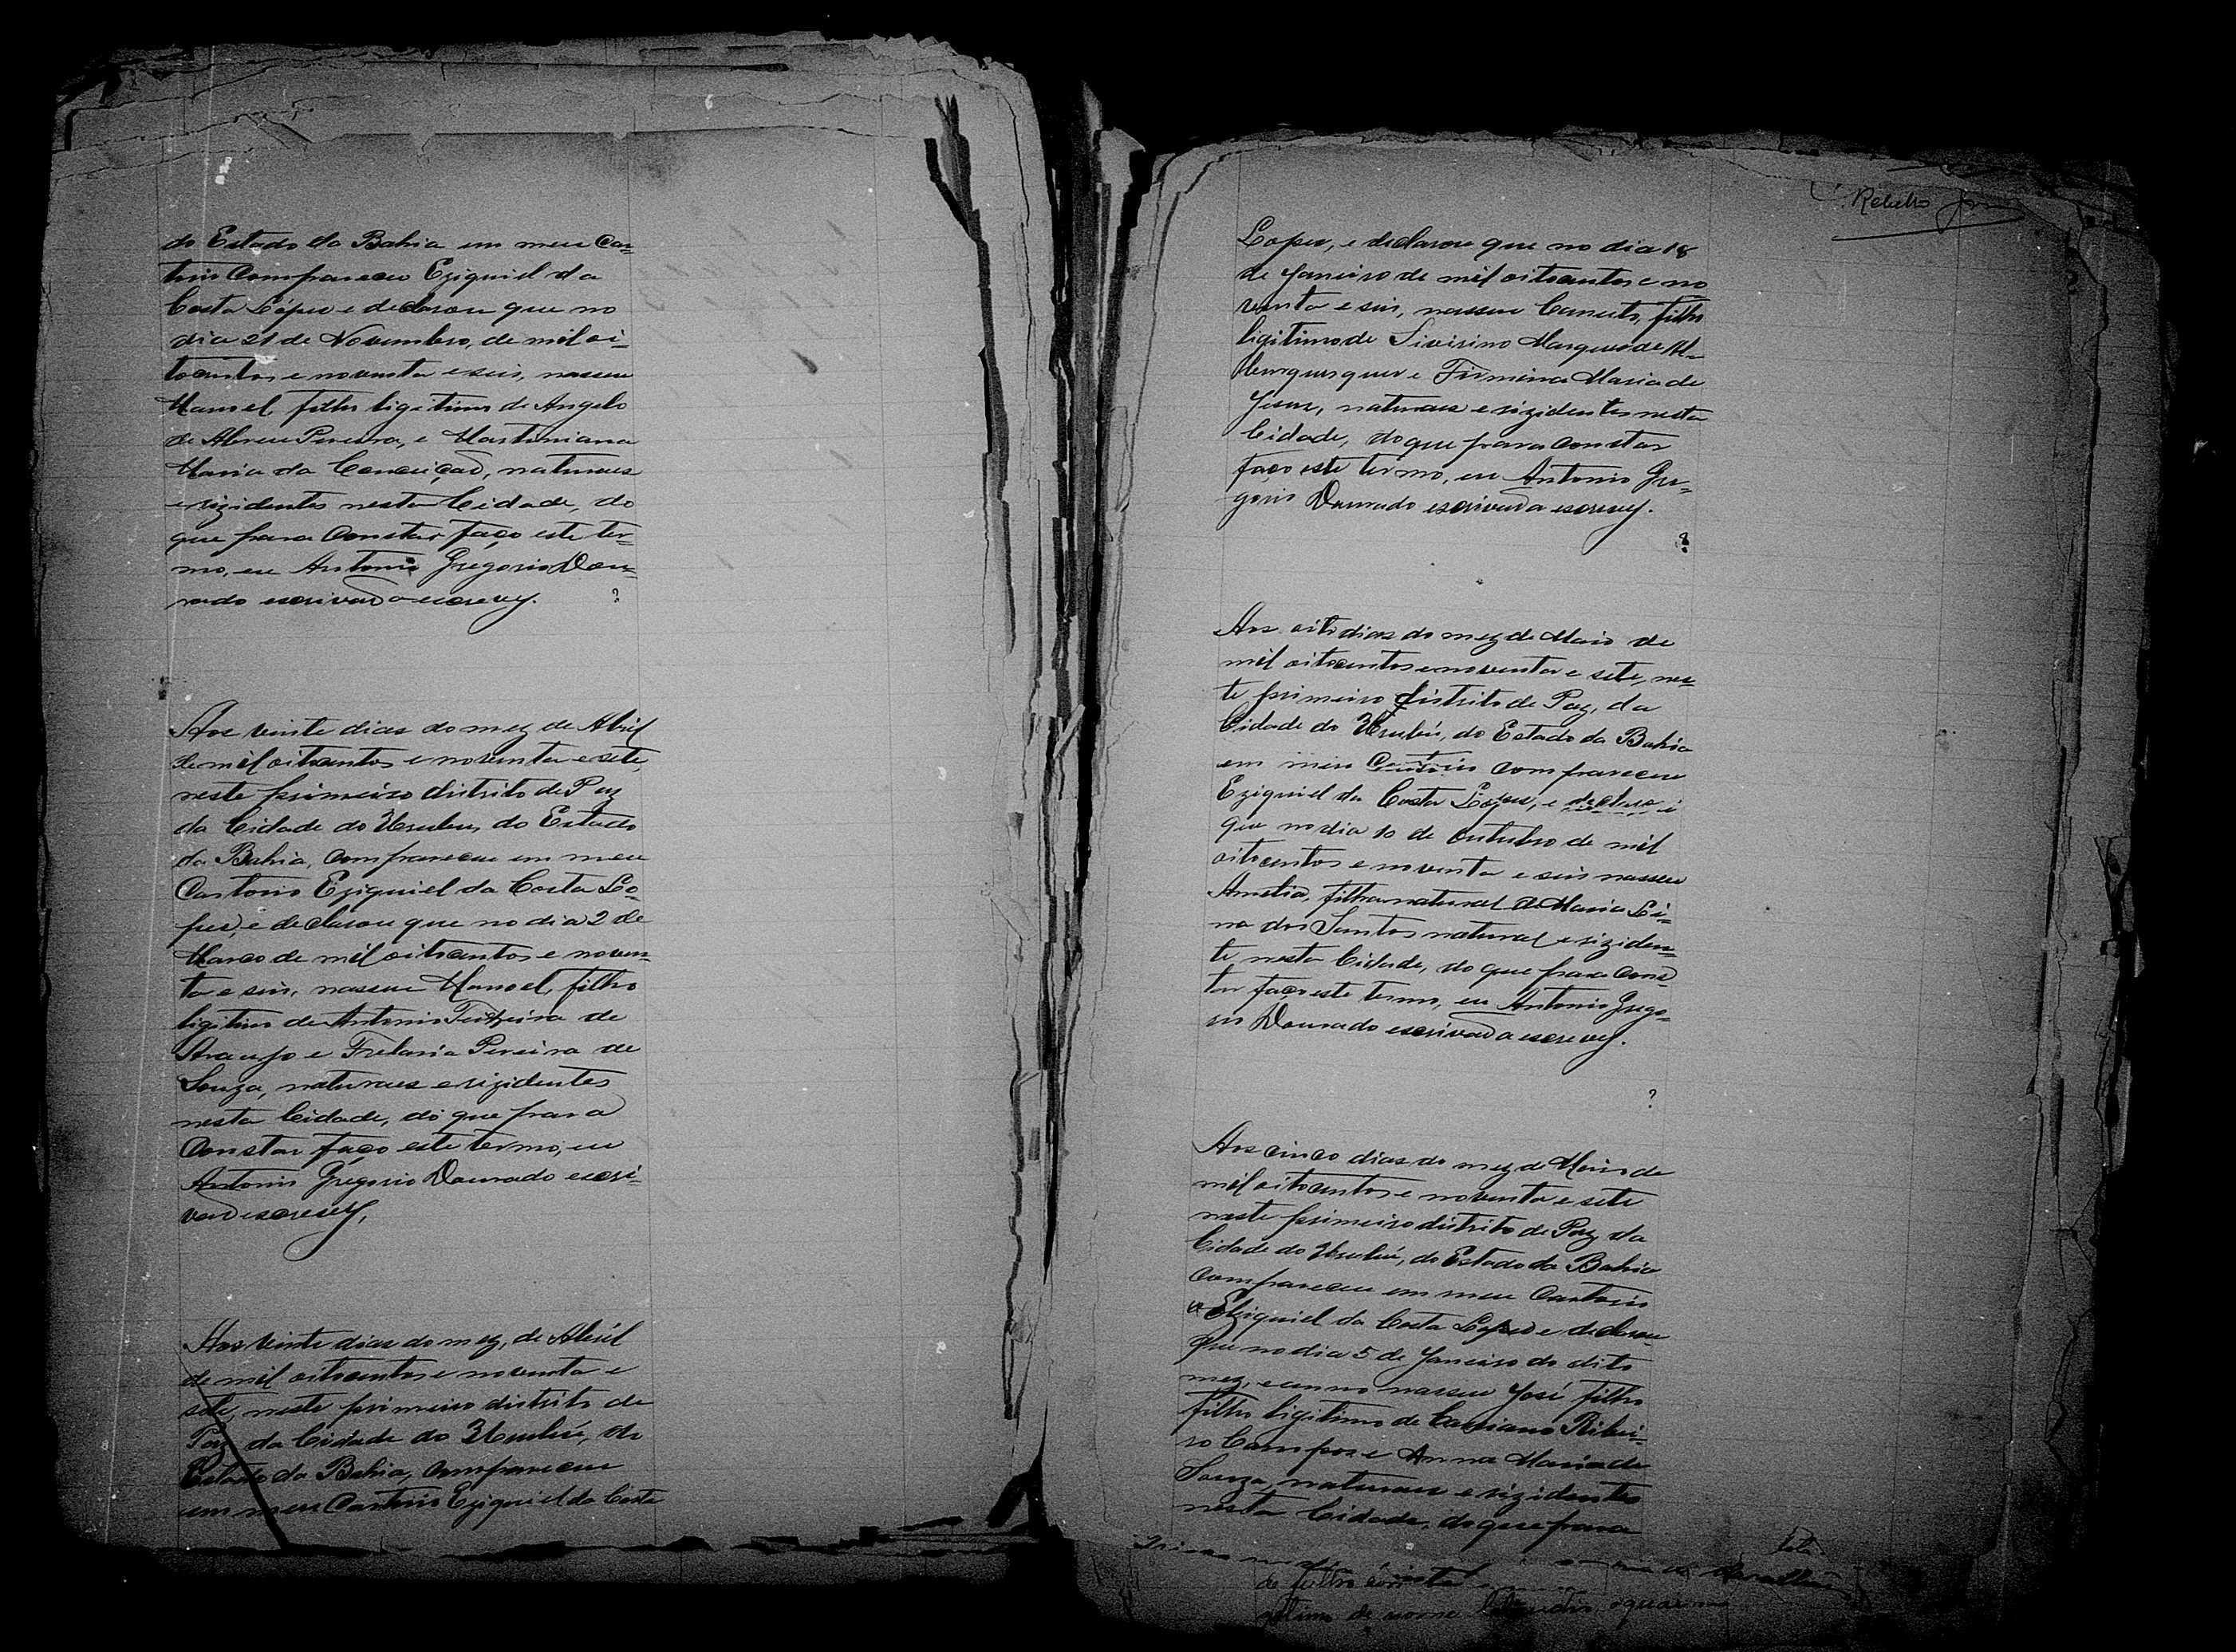 do Estado da Bahia em meu Car-
torio Compareceu Eziquiel da
Costa Lópes e declarou que no
dia 21 de Novembro, de mil oi-
tocentos e noventa e seis, nasceu
Manoel, filho ligitimo de Angelo
de Abreu Pereira, e Martiniana
Maria da Conceição, naturaes
e rizidentes nesta Cidade, do
que para Constar faço este ter-
mo, eu Antonio Gregorio Dou-
rado escrivão o escrevy. ?
Aos vinte dias do mez de Abril
de mil oitocentos e noventa e sete,
neste primeiro distrito de Paz
da Cidade do Urubu, do Estado
da Bahia, Compareceu em meu
Cartorio Eziquiel da Costa Lo-
pes, e declarou que no dia 2 de
Março de mil oitocentos e noven-
ta e seis, nasceu Manoel, filho
ligitimo de Antonio Teixeira de
Araujo e Pereira de
Souza, naturaes e rizidentes
nesta Cidade, do que para
Constar faço este termo, eu
Antonio Gregorio Dourado escri-
vão escrevy,
Aos vinte dias do mez, de Abril
de mil oitocentos e noventa e
sete, neste primeiro distrito de
Paz da Cidade do Urubú, do
Estado da Bahia, Compareceu
em meu Cartorio Eziquiel da Costa
Lopes, e declarou que no dia 18
de Janeiro de mil oitocentos e no
venta e seis, nasceu Canuto, filho
ligitimo de Siverino Marques de Al-
burquerque e Firmina Maria de
Jesus, naturaes e rizidentes nesta
Cidade, do que para Constar
faço este termo, eu Antonio Gre-
gorio Dourado escrivão o escrevy.
?
Aos oito dias do mez de Maio de
mil oitocentos e noventa e sete, nes-
te primeiro distrito de Paz, da
Cidade do Urubú, do Estado da Bahia
em meu Cartorio compareceu
Eziquiel da Costa Lopes, e
que no dia 10 de Outubro de mil
oitocentos e noventa e seis nasceu
Amelia, filha natural de Maria Li-
na dos Santos natural e riziden-
te, nesta Cidade, do que para Cons-
tar faço este termo, eu Antonio Grego-
rio Dourado escrivão o escrevy.
?
Aos cinco dias do mez de Maio de
mil oitocentos e noventa e sete
neste primeiro distrito de Paz da
Cidade do Urubú, do Estado da Bahia
compareceu em meu Cartorio
Eziquiel da Costa Lopes e declarou
que no dia 5 de Janeiro do dito
mez, e anno nasceu José filho
filho ligitimo de Cassiano Ribei-
ro Campos e Anna Maria de
Souza, naturaes e rizidentes
nesta Cidade, do que para